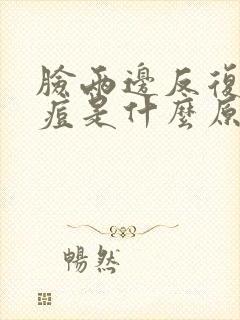 臉兩邊反復
痘是什麼原
暢然